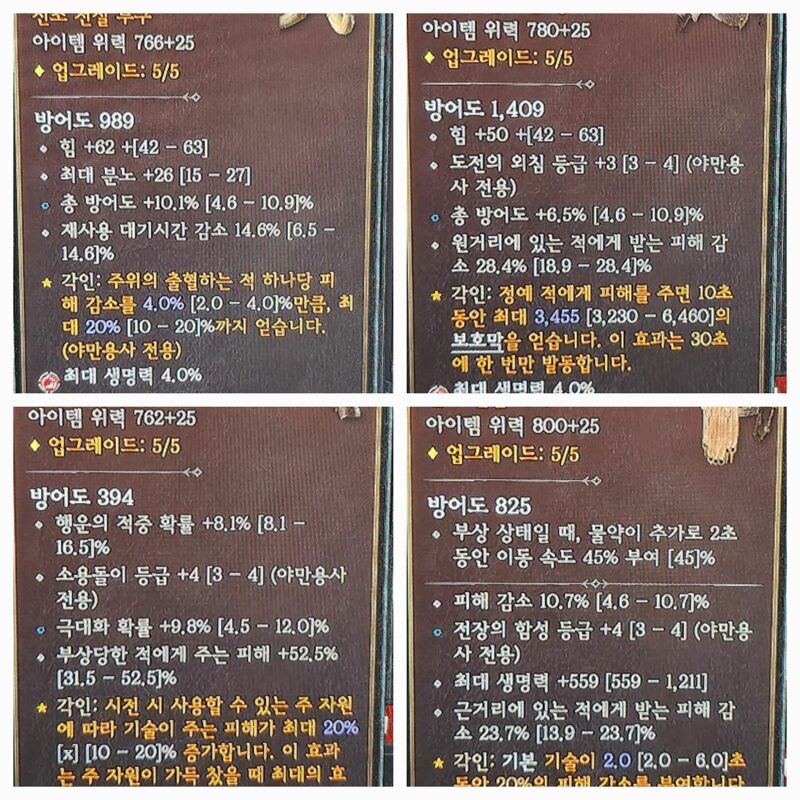 신조 전설 투구
아이템 위력 766+25
♦ 업그레이드: 5/5
방어도 989
힘 +62 +[42 – 63]
최대 분노 +26 [15 – 27]
총 방어도 +10.1% [4.6 – 10.9]%
재사용 대기시간 감소 14.6% [6.5 –
14.6]%
★ 각인: 주위의 출혈하는 적 하나당 피
해 감소를 4.0% [2.0 – 4.0]%만큼, 최
대 20% [10 – 20]%까지 얻습니다.
(야만용사 전용)
최대 생명력 4.0%
아이템 위력 780+25
♦ 업그레이드: 5/5
방어도 1,409
힘 +50 +[42 – 63]
도전의 외침 등급 +3 [3 – 4] (야만용
사 전용)
총 방어도 +6.5% [4.6 – 10.9]%
원거리에 있는 적에게 받는 피해 감
소 28.4% [18.9 – 28.4]%
★ 각인: 정예 적에게 피해를 주면 10초
동안 최대 3,455 [3,230 – 6,460]의
보호막을 얻습니다. 이 효과는 30초
에 한 번만 발동합니다.
최대 생명력 4.0%
아이템 위력 762+25
♦ 업그레이드: 5/5
방어도 394
행운의 적중 확률 +8.1% [8.1 –
16.5]%
소용돌이 등급 +4 [3 – 4] (야만용사
전용)
극대화 확률 +9.8% [4.5 – 12.0]%
부상당한 적에게 주는 피해 +52.5%
[31.5 – 52.5]%
★ 각인: 시전 시 사용할 수 있는 주 자원
에 따라 기술이 주는 피해가 최대 20%
[x] [10 – 20]% 증가합니다. 이 효과
는 주 자원이 가득 찼을 때 최대의 효
아이템 위력 800+25
♦ 업그레이드: 5/5
방어도 825
부상 상태일 때, 물약이 추가로 2초
동안 이동 속도 45% 부여 [45]%
피해 감소 10.7% [4.6 – 10.7]%
전장의 함성 등급 +4 [3 – 4] (야만용
사 전용)
최대 생명력 +559 [559 – 1,211]
근거리에 있는 적에게 받는 피해 감
소 23.7% [13.9 – 23.7]%
★ 각인: 기본 기술이 2.0 [2.0 – 6.0]초
동안 20%의 피해 감소를 부여합니다